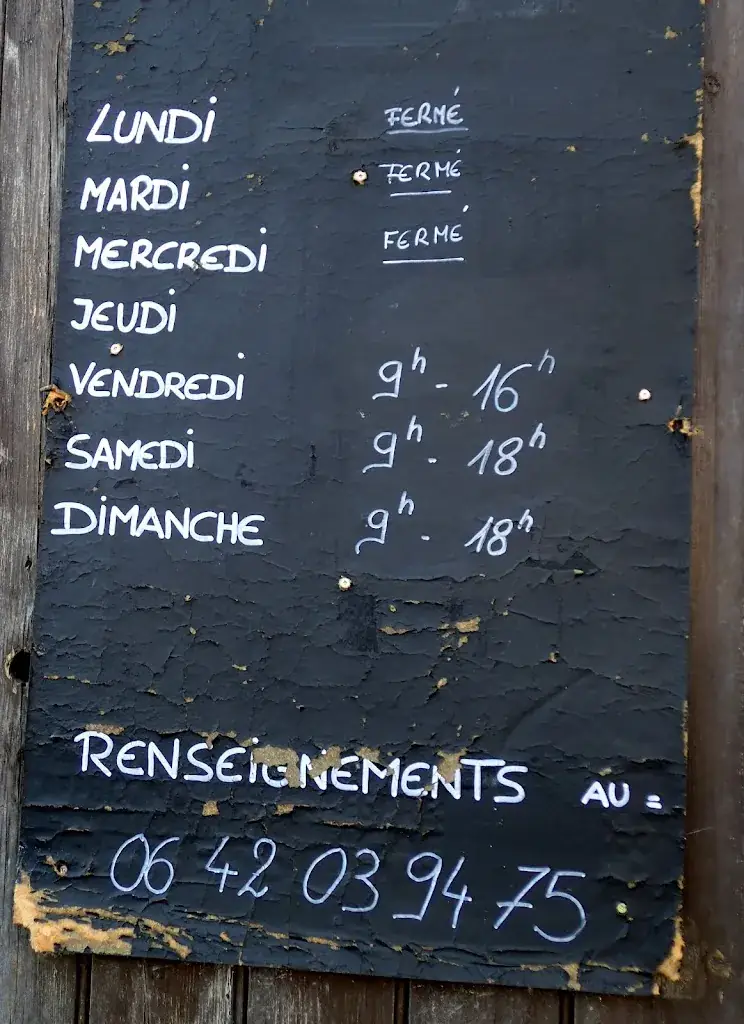 LUNDI FERMÉ
MARDI FERMÉ
MERCREDI FERMÉ
JEUDI
VENDREDI 9h - 16h
SAMEDI 9h - 18h
DIMANCHE 9h - 18h
RENSEIGNEMENTS AU =
06 42 03 94 75